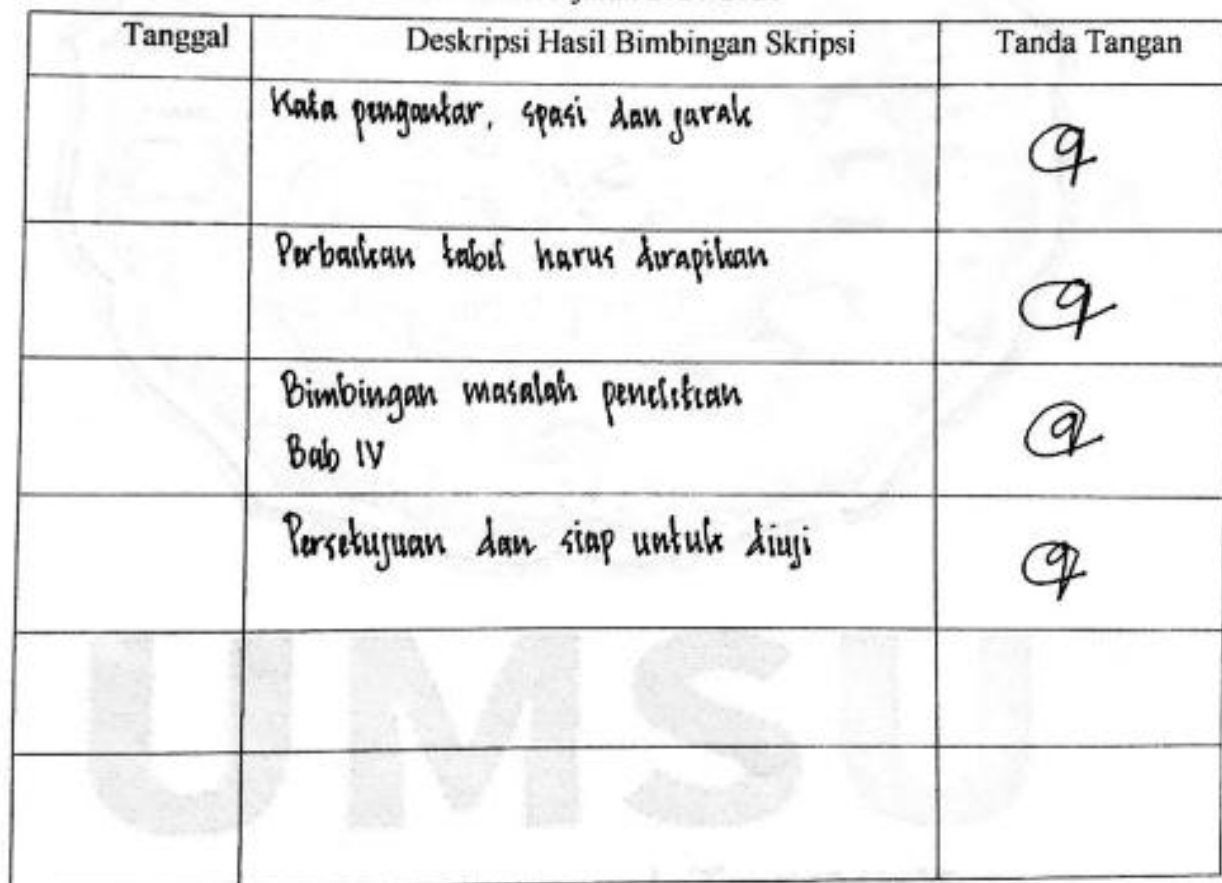 Tanggal Deskripsi Hasil Bimbingan Skripsi Tanda Tangan
Kata pengantar, spasi dan jarak
Perbaikan tabel harus dirapikan
Bimbingan masalah penelitian
Bab IV
Persetujuan dan siap untuk diuji
UMSU